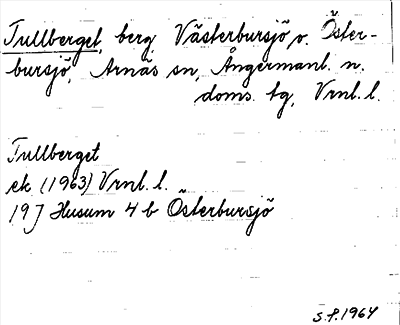 Tullberget, berg, Västerbursjö o. Öster-
bursjö, Arnäs sn, Ångermanl. n.
doms. tg, Vrnl. l.
Tullberget
ek (1963) Vrnl. l.
19 J Husum 4 b Österbursjö
S.P. 1964